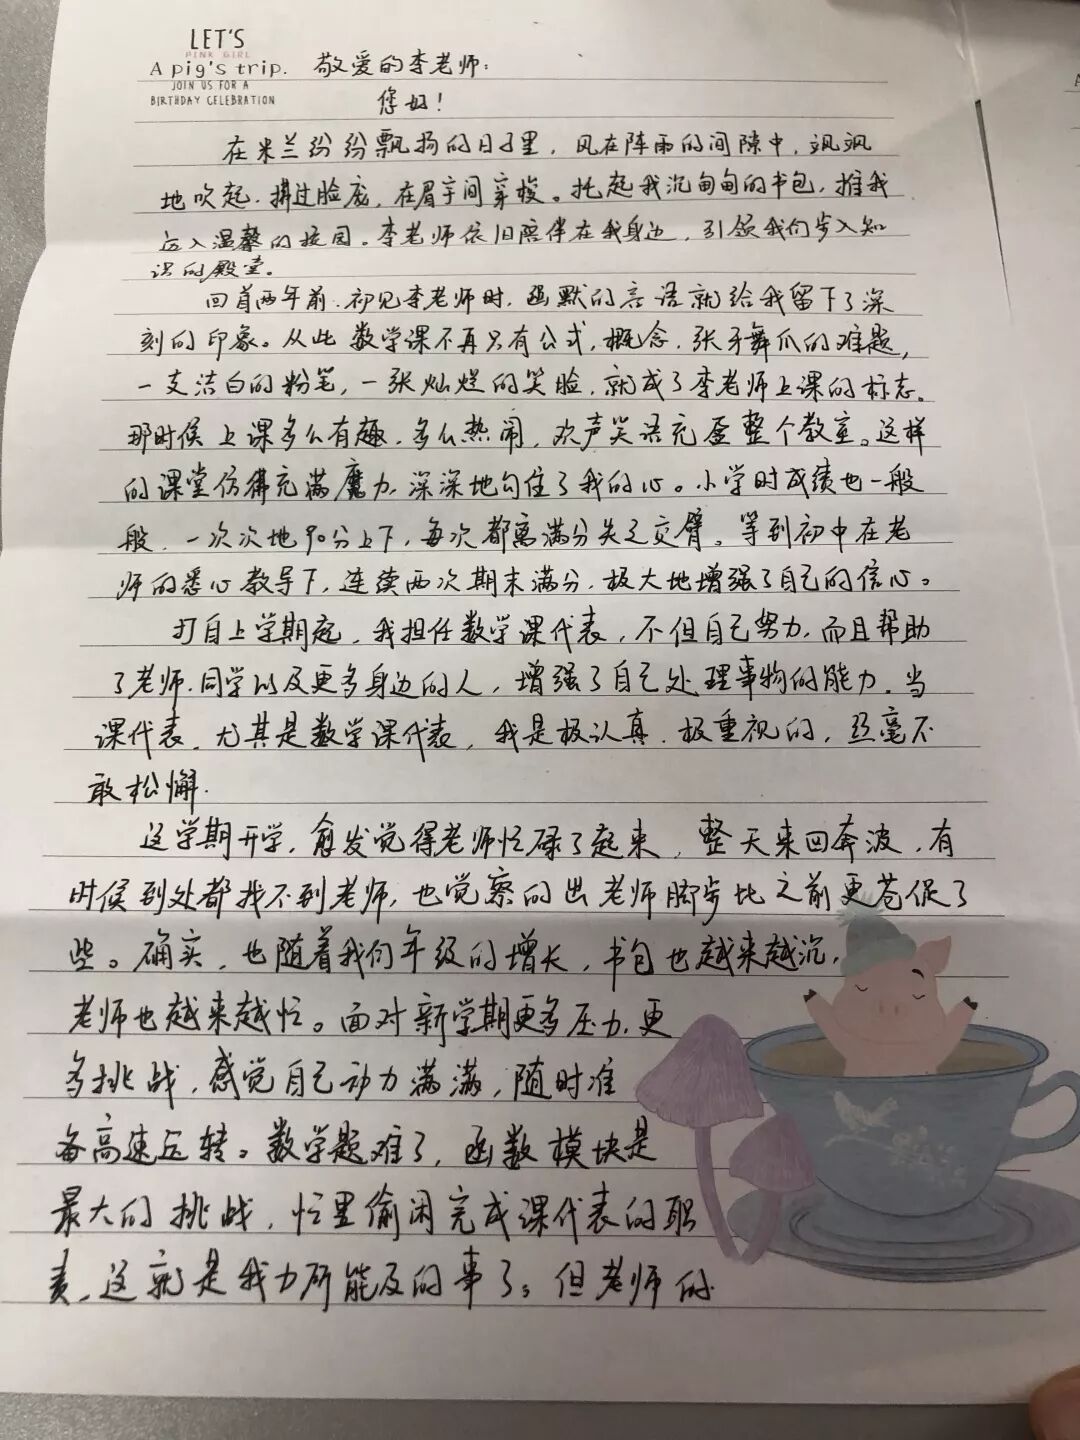 LET'S
PINK GIRL
A pig's trip.
JOIN US FOR A
BIRTHDAY CELEBRATION
敬爱的李老师：
您好！
在米兰纷纷飘扬的日子里，风在阵雨的间隙中，飒飒
地吹起，拂过脸庞，在眉宇间穿梭。托起我沉甸甸的书包，推我
迈入温馨的校园。李老师依旧陪伴在我身边，引领我们步入知
识的殿堂。
回首两年前，初见李老师时，幽默的言语就给我留下了深
刻的印象。从此数学课不再只有公式，概念，张牙舞爪的难题，
一支洁白的粉笔，一张灿烂的笑脸，就成了李老师上课的标志。
那时候上课多么有趣，多么热闹，欢声笑语充盈整个教室。这样
的课堂仿佛充满魔力，深深地勾住了我的心。小学时成绩也一般
般，一次次地90分上下，每次都离满分失之交臂。等到初中在老
师的悉心教导下，连续两次期末满分，极大地增强了自己的信心。
打自上学期起，我担任数学课代表，不但自己努力，而且帮助
了老师、同学以及更多身边的人，增强了自己处理事物的能力。当
课代表，尤其是数学课代表，我是极认真，极重视的，丝毫不
敢松懈.
这学期开学，愈发觉得老师忙碌了起来，整天来回奔波，有
时候到处都找不到老师，也觉察的出老师脚步比之前更苍促了
些。确实，也随着我们年级的增长，书包也越来越沉，
老师也越来越忙。面对新学期更多压力，更
多挑战，感觉自己动力满满，随时准
备高速运转。数学题难了，函数模块是
最大的挑战，忙里偷闲完成课代表的职
责，这就是我力所能及的事了。但老师的